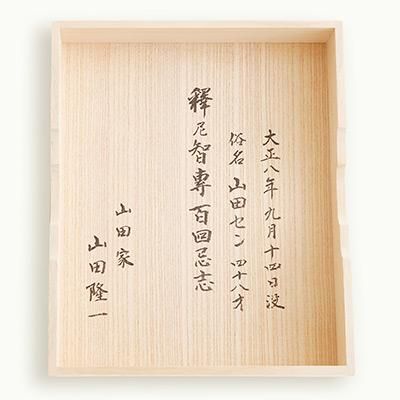 大正八年九月十四日没
俗名 山田セン 四十八才
釋尼智專百回忌志
山田家
山田隆一